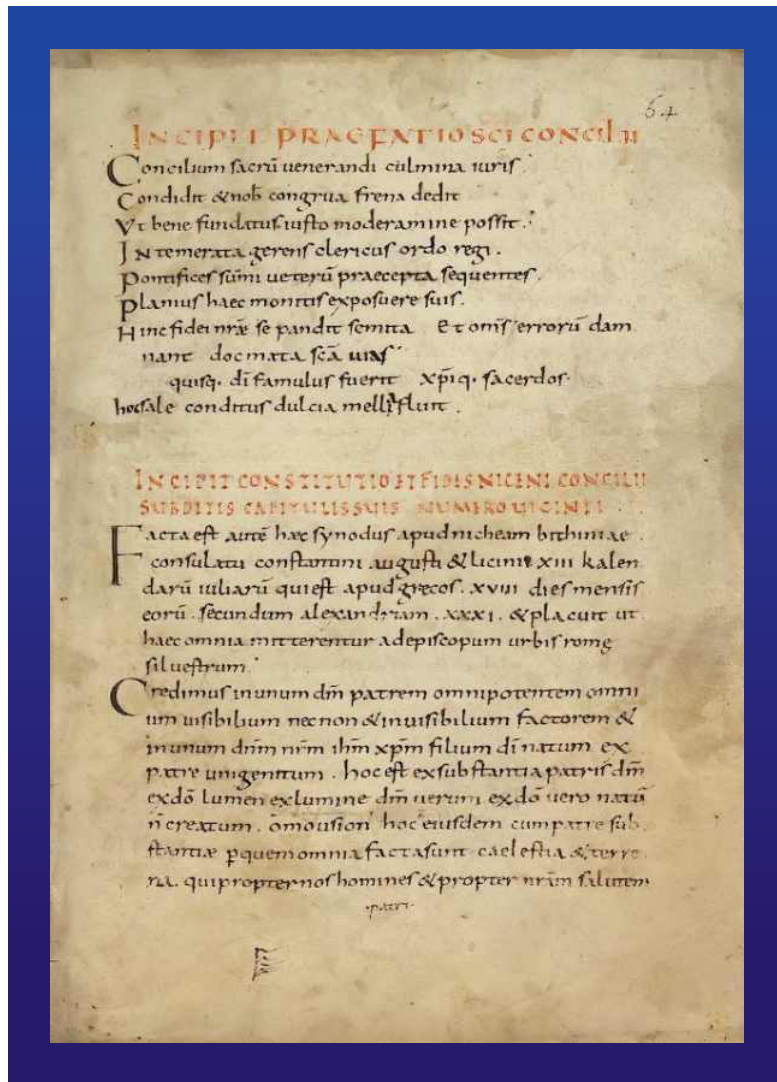 64
INCIPIT PRAEFATIO SCI CONCILII
Concilium sacrū uenerandi culmina iuris
Condidit & nob congrua frena dedit
Vt bene fundatus iusto moderamine possit.
Intemerata gerens clericus ordo regi.
Pontifices sūmi ueterū praecepta sequentes.
Planius haec monitis exposuere suis.
Hinc fidei nræ se pandit semita Et om̄s errorū dam
nant docmata scā uias
quisq. dī famulus fuerit xp̄iq. sacerdos.
hoc sale conditus dulcia mella fluit.
INCIPIT CONSTITUTIO ET FIDIS NICENI CONCILII
SUBDITIS CAPITULIS SUIS NUMERO UICINTI
Facta est autē haec synodus apud nicheam bithiniae
consulatu constantini augusti & licinii XIII kalen
darū iuliarū qui est apud grecos. XVIIII dies mensis
eorū. secundum alexandriam. XXXI. & placuit ut
haec omnia mitterentur ad episcopum urbis romę
siluestrum.
Credimus in unum dm̄ patrem omnipotentem omni
um uisibilium necnon & inuisibilium factorem &
in unum dnm̄ nrm̄ ihm̄ xpm̄ filium dī natum ex
patre unigenitum. hoc est ex substantia patris dm̄
ex dō lumen ex lumine dm̄ uerum ex dō uero natū
n̄ creatum. omousion hoc eiusdem cum patre sub
stantiæ ꝑ quem omnia facta sunt caelestia & terre
na. qui propter nos homines & propter nrām salutem
patri